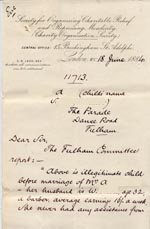 Society for Organising Charitable Relief
and Repressing Mendicity.
Charity Organisation Society
CENTRAL OFFICE: 15 Buckingham St. Adelphi
London, 18 June 1896
11713.
A (child's name)
The Parade
Dawes Road
Fulham
Dear Sir,
The Fulham Committee
report:—
Above is illegitimate child
before marriage of Mrs A
- her husband is W. age 32,
a barber, average earning 18/- a week
She never had any assistance from